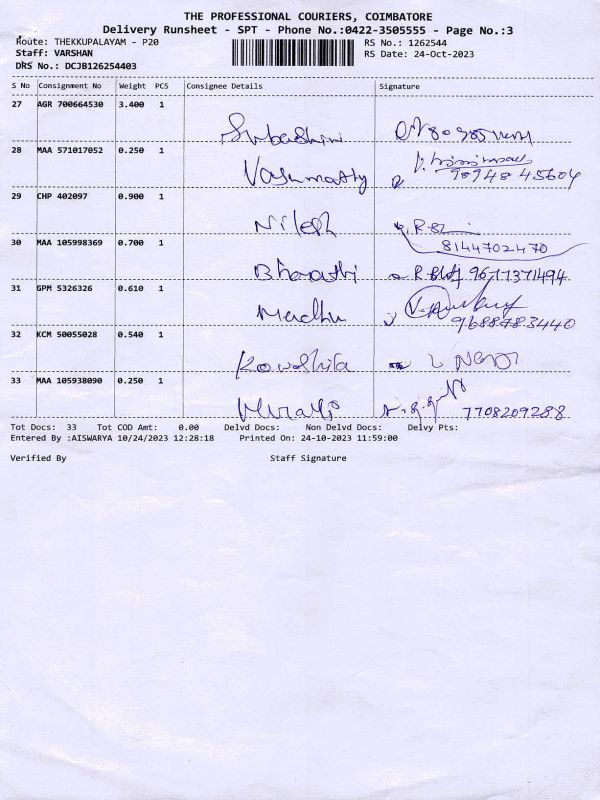 THE PROFESSIONAL COURIERS, COIMBATORE
Delivery Runsheet - SPT - Phone No.:0422-3505555 - Page No.:3
Route: THEKKUPALAYAM - P20 RS No.: 1262544
Staff: VARSHAN RS Date: 24-Oct-2023
DRS No.: DCJB126254403
S No Consignment No Weight PCS Consignee Details Signature
27 AGR 700664530 3.400 1
Subashini
28 MAA 571017052 0.250 1
Vasumathy 98948 45604
29 CHP 402097 0.900 1
Nilesh
8144702470
30 MAA 105998369 0.700 1
Bharathi 9677371494
31 GPM 5326326 0.610 1
Madhu
9688783440
32 KCM 50055028 0.540 1
33 MAA 105938090 0.250 1
7708209288
Tot Docs: 33 Tot COD Amt: 0.00 Delvd Docs: Non Delvd Docs: Delvy Pts:
Entered By :AISWARYA 10/24/2023 12:28:18 Printed On: 24-10-2023 11:59:00
Verified By Staff Signature